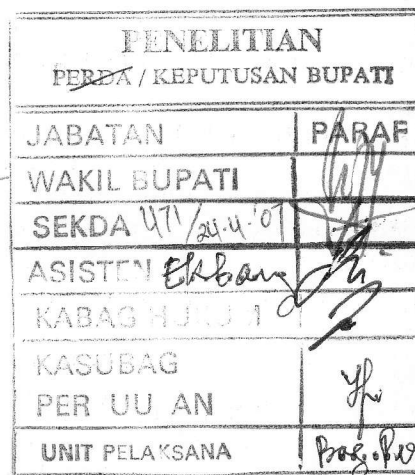 PENELITIAN
PERDA / KEPUTUSAN BUPATI
JABATAN PARAF
WAKIL BUPATI
SEKDA 471/24.4.'07
ASISTEN Ekbang
KABAG HUKUM
KASUBAG
PER UU AN
UNIT PELAKSANA Bag.